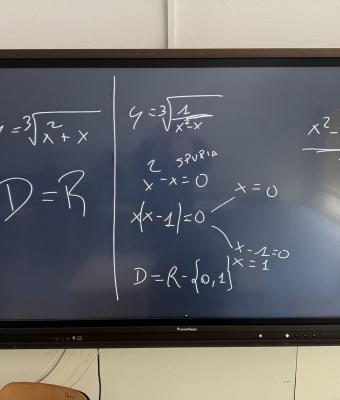 y = ³√(x² + x)
D = R
y = ³√(1/(x² - x))
SPURIA
x² - x = 0
x(x - 1) = 0
x = 0
x - 1 = 0
x = 1
D = R - {0, 1}
x² -
Promethean